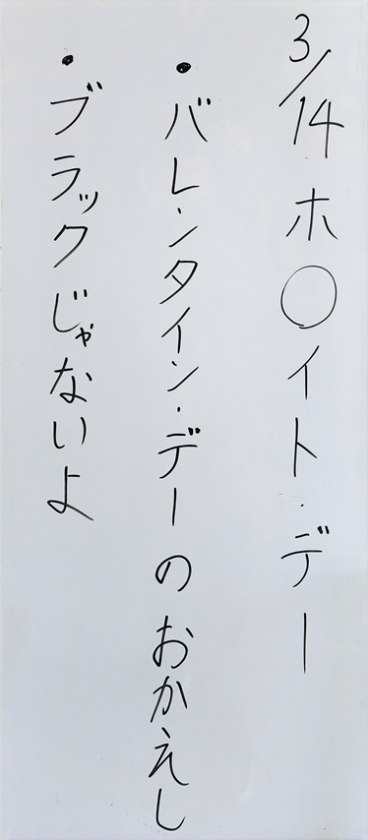 3/14 ホ○イト・デー
・バレンタイン・デーのおかえし
・ブラックじゃないよ